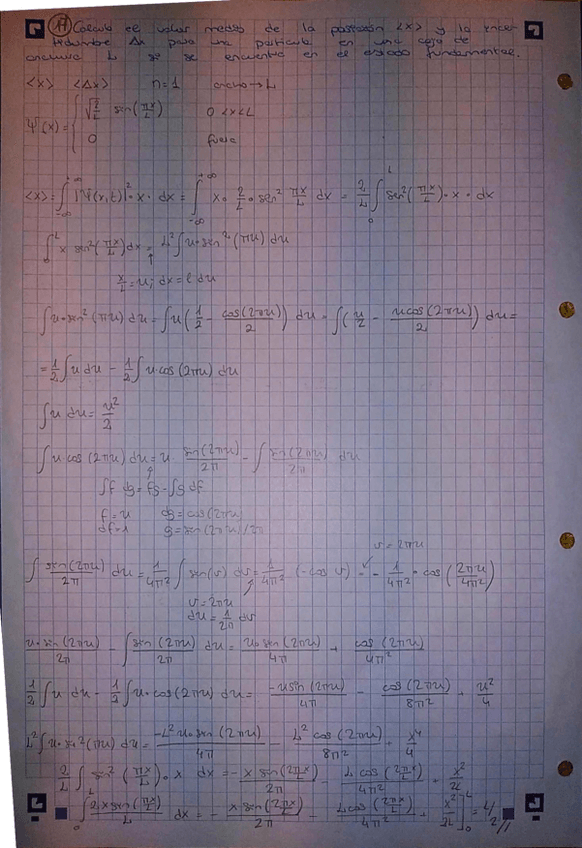 17 Calcula el valor medio de la posición <x> y la incer
tidumbre Δx para una partícula en una caja de
anchura L si se encuentra en el estado fundamental.
<x> <Δx> n=1 ancho→L
Ψ(x) = { √(2/L) sen(πx/L) 0<x<L
0 fuera
<x> = ∫_{-∞}^{+∞} |Ψ(x,t)|²·x·dx = ∫_{-∞}^{+∞} x·2/L·sen² πx/L dx = 2/L ∫_0^L sen²(πx/L)·x·dx
∫_0^L x sen²(πx/L) dx = L² ∫ u·sen²(πu) du
x/L = u; dx = l du
∫ u·sen²(πu) du = ∫ u(1/2 - cos(2πu)/2) du = ∫(u/2 - u cos(2πu)/2) du =
= 1/2 ∫ u du - 1/2 ∫ u cos(2πu) du
∫ u du = u²/2
∫ u cos(2πu) du = u· sen(2πu)/2π - ∫ sen(2πu)/2π du
∫f dg = fg - ∫g df
f = u dg = cos(2πu)
df = 1 g = sen(2πu)/2π
v = 2πu
∫ sen(2πu)/2π du = 1/4π² ∫ sen(v) dv = 1/4π² (-cos v) = - 1/4π² · cos(2πu/4π²)
v = 2πu
du = 1/2π dv
u·sin(2πu)/2π - ∫ sin(2πu)/2π du = u·sin(2πu)/4π + cos(2πu)/4π²
1/2 ∫ u du - 1/2 ∫ u·cos(2πu) du = -u sin(2πu)/4π - cos(2πu)/8π² + u²/4
L² ∫ u·sen²(πu) du = -L² u·sen(2πu)/4π - L² cos(2πu)/8π² + x⁴/4
2/L ∫ sen²(πx/L)·x dx = - x sin(2πx/L)/2π - L cos(2πx/L)/4π² + x²/2L
∫_0^L 2x sin(πx/L)/L dx = - x sin(2πx/L)/2π - L cos(2πx/L)/4π² + x²/2L ]_0^L = L/2